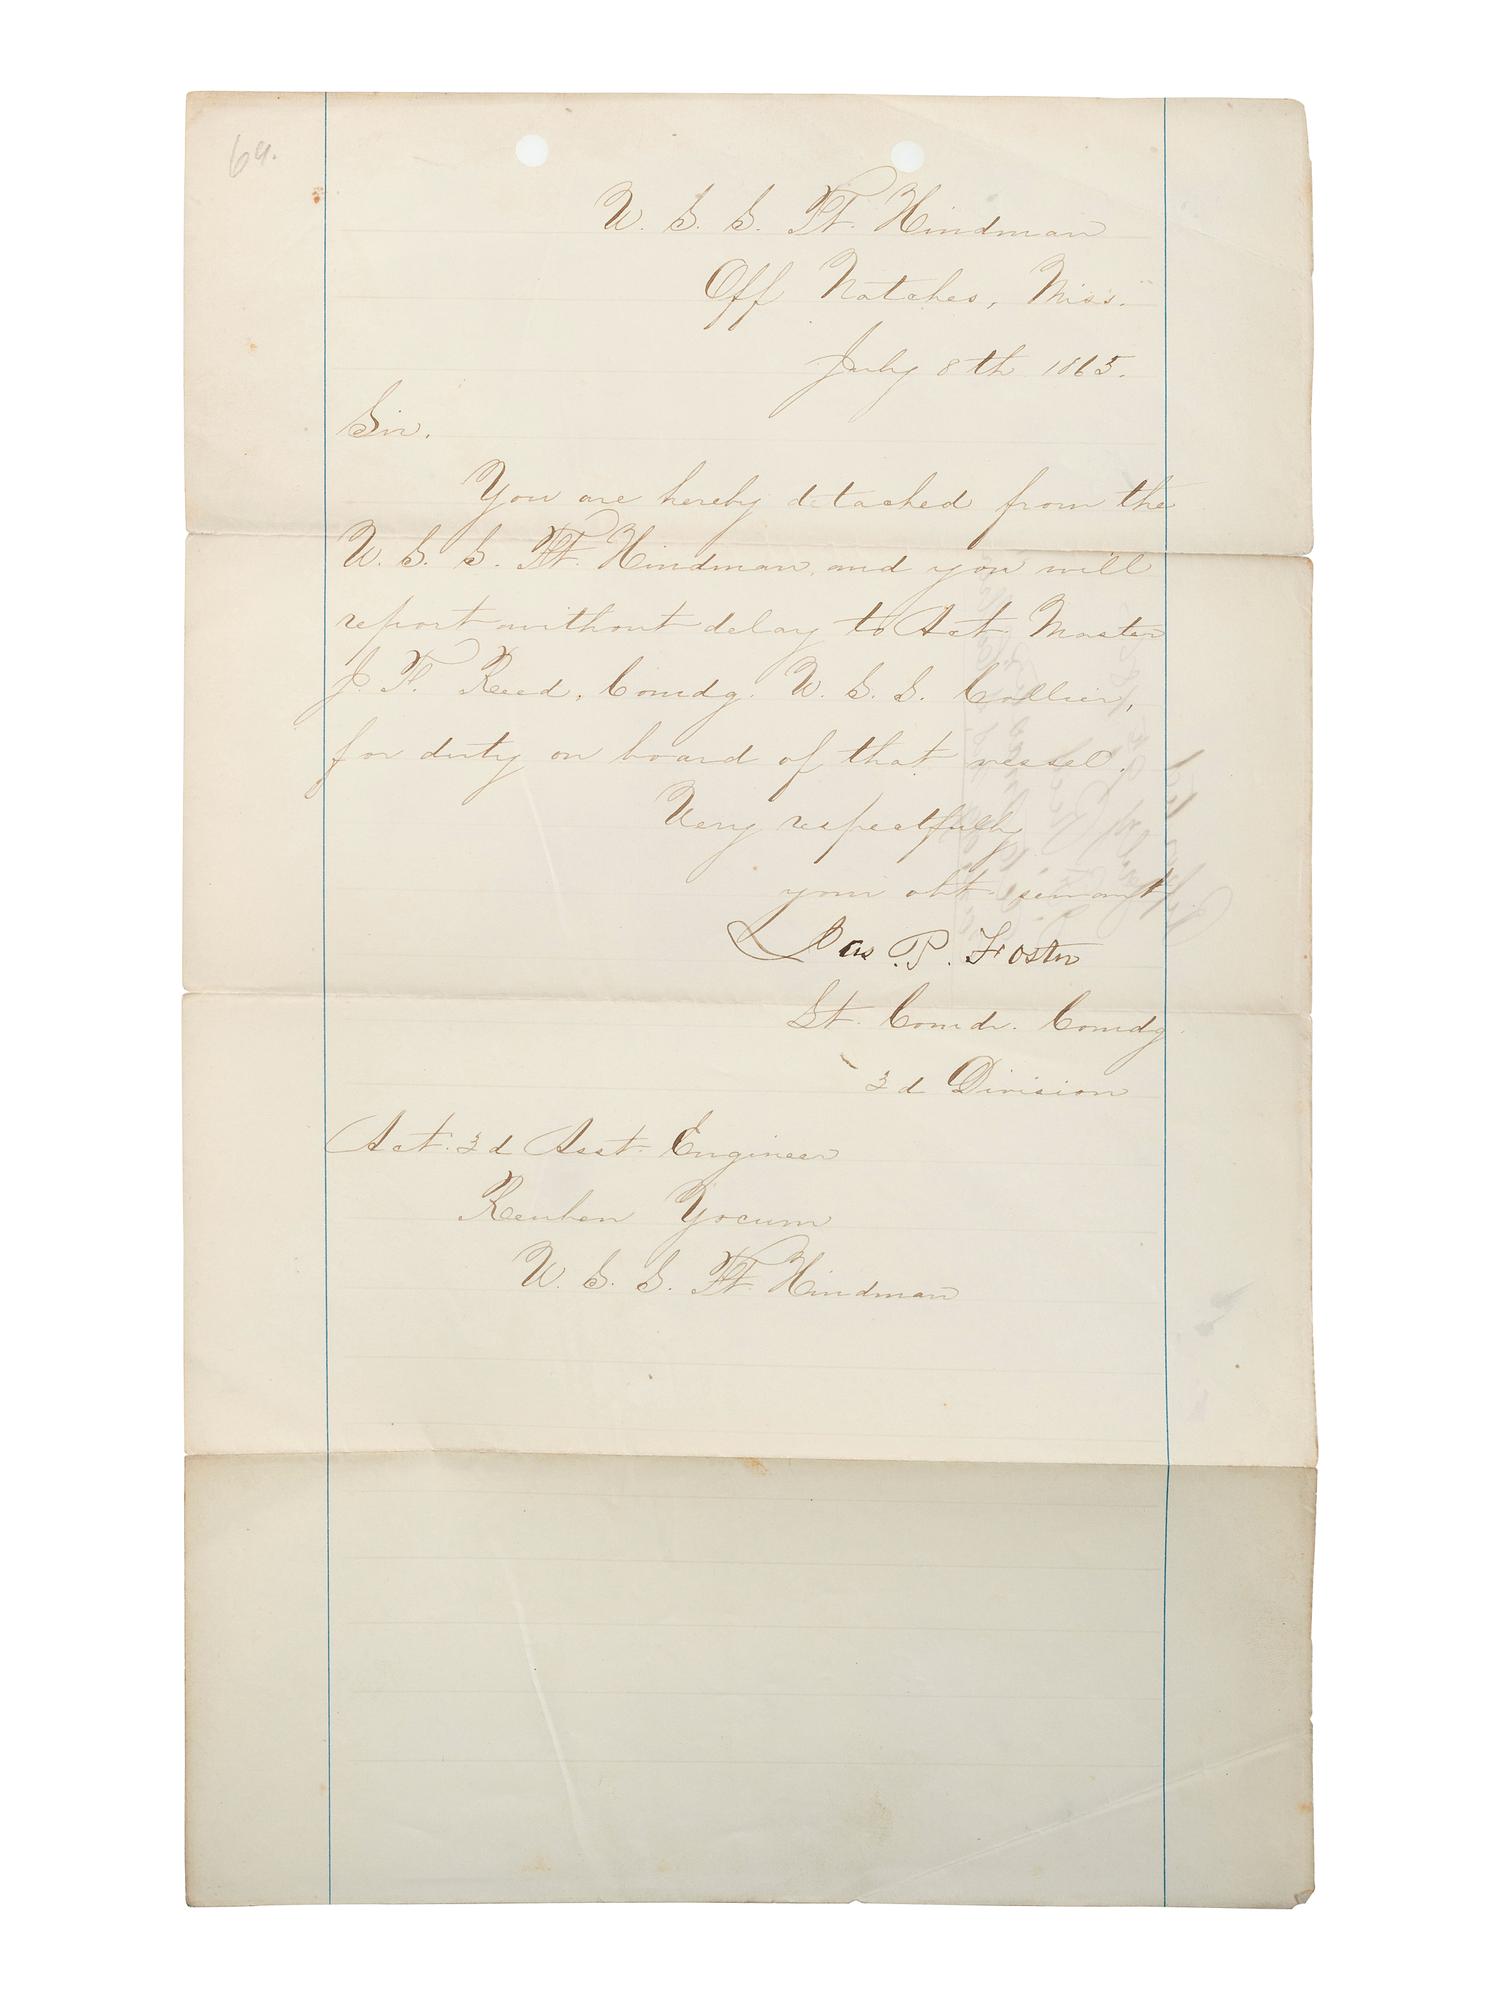 64.
U. S. S. Ft. Hindman
Off Natches, Miss.
July 8th 1865.
Sir.
You are hereby detached from the
U. S. S. Ft. Hindman and you will
report without delay to Act. Master
J. F. Reed, Comdg. U. S. S. Collier,
for duty on board of that vessel.
Very respectfully
your obt. servant.
Jas P. Foster
Lt. Comdr. Comdg.
3d Division
Act. 3d Asst. Engineer
Reuben Yocum
U. S. S. Ft. Hindman